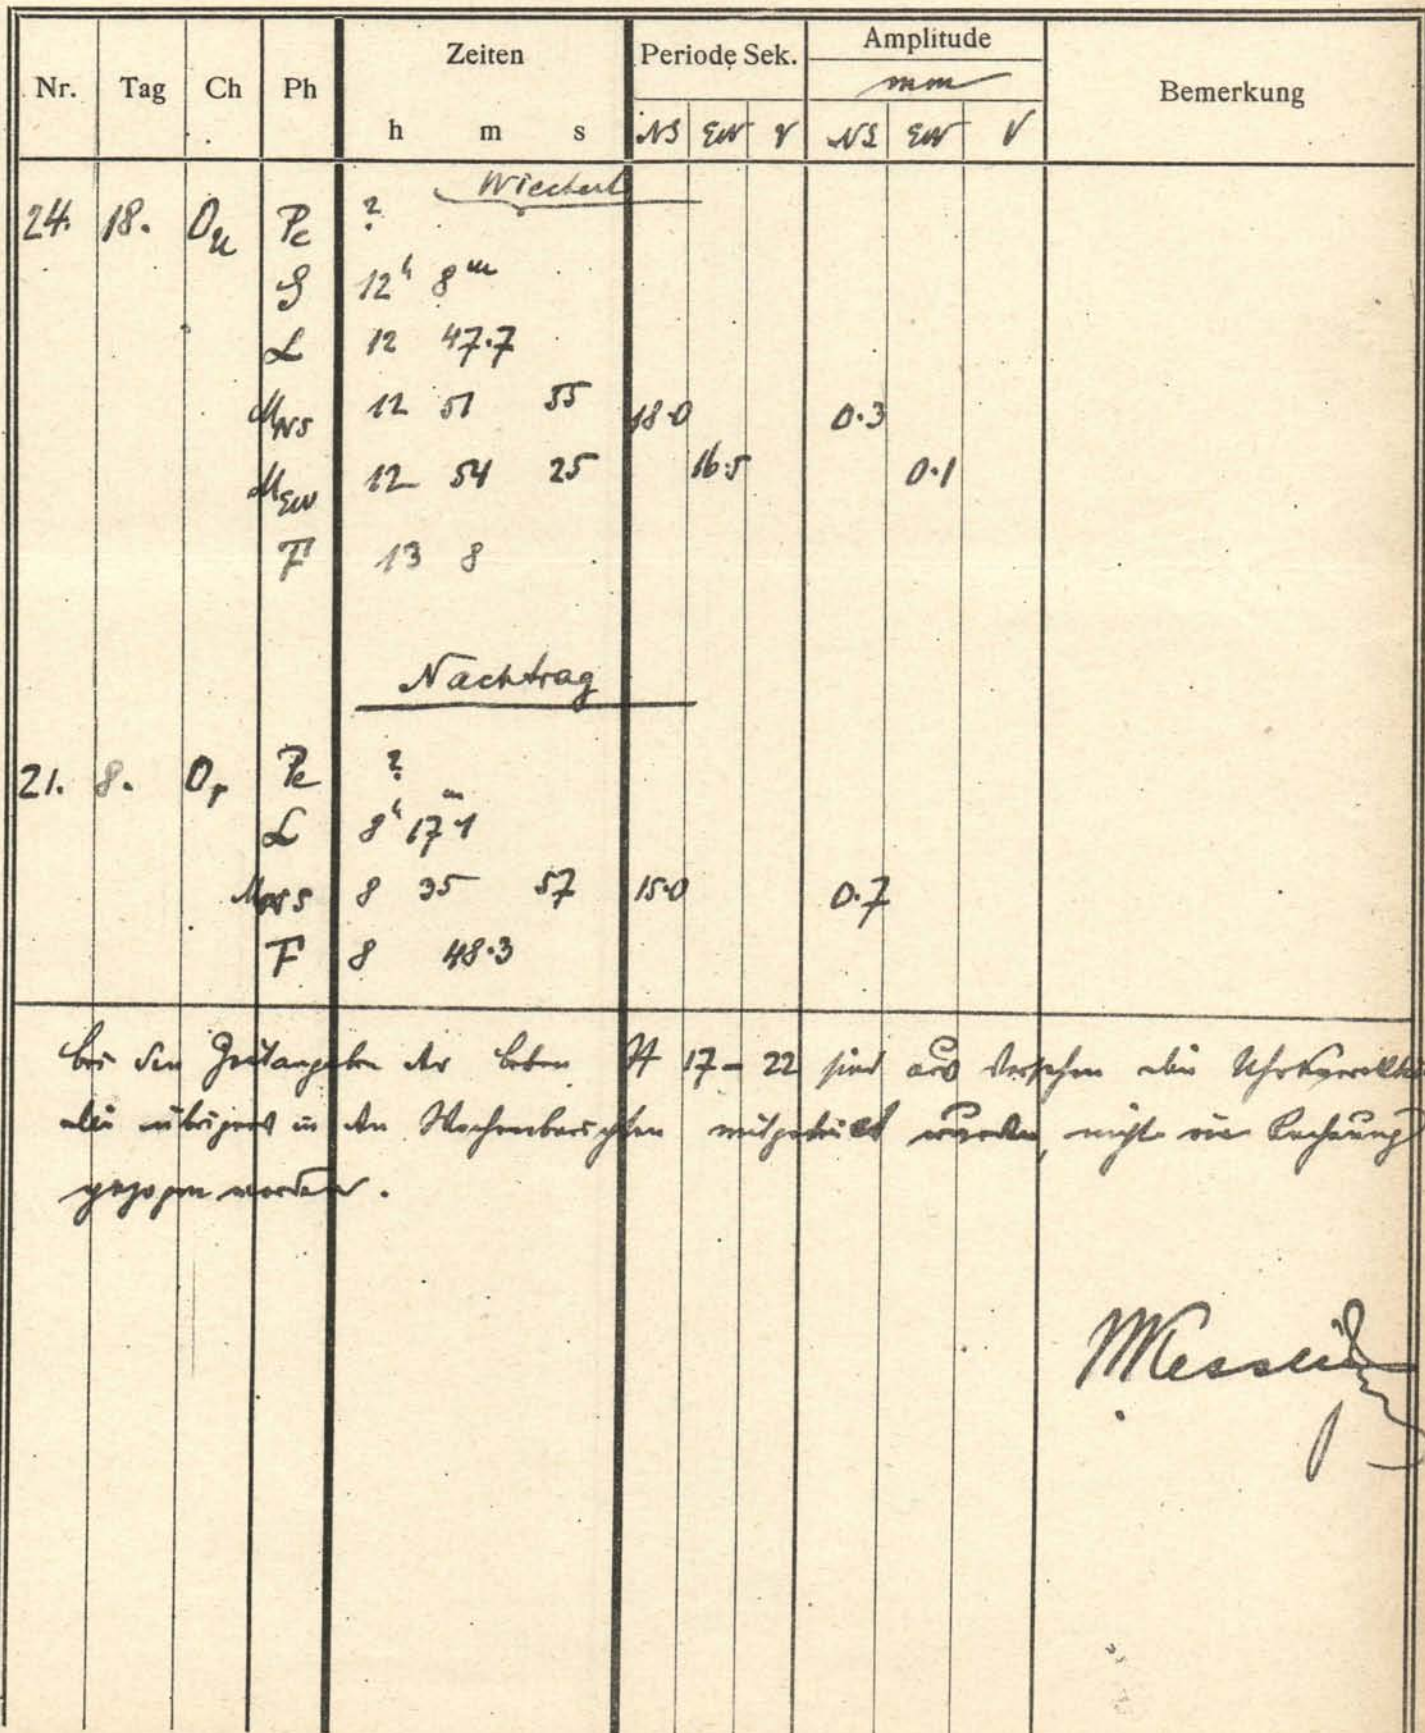 Nr. Tag Ch Ph Zeiten Periode Sek. Amplitude Bemerkung
mm
h m s NS EW V NS EW V
Wiechert
24. 18. Ou Pe ?
S 12h 8m
L 12 47.7
MNS 12 51 55 18.0 0.3
MEW 12 54 25 16.5 0.1
F 13 8
Nachtrag
21. 8. Or Pe ?
L 8h 17m.1
MNS 8 35 57 15.0 0.7
F 8 48.3
bei den Zeitangaben der beben № 17–22 sind aus Versehen die
die übrigens in den Wochenberichten mitgeteilt wurden, nicht in Rechnung
gezogen worden.